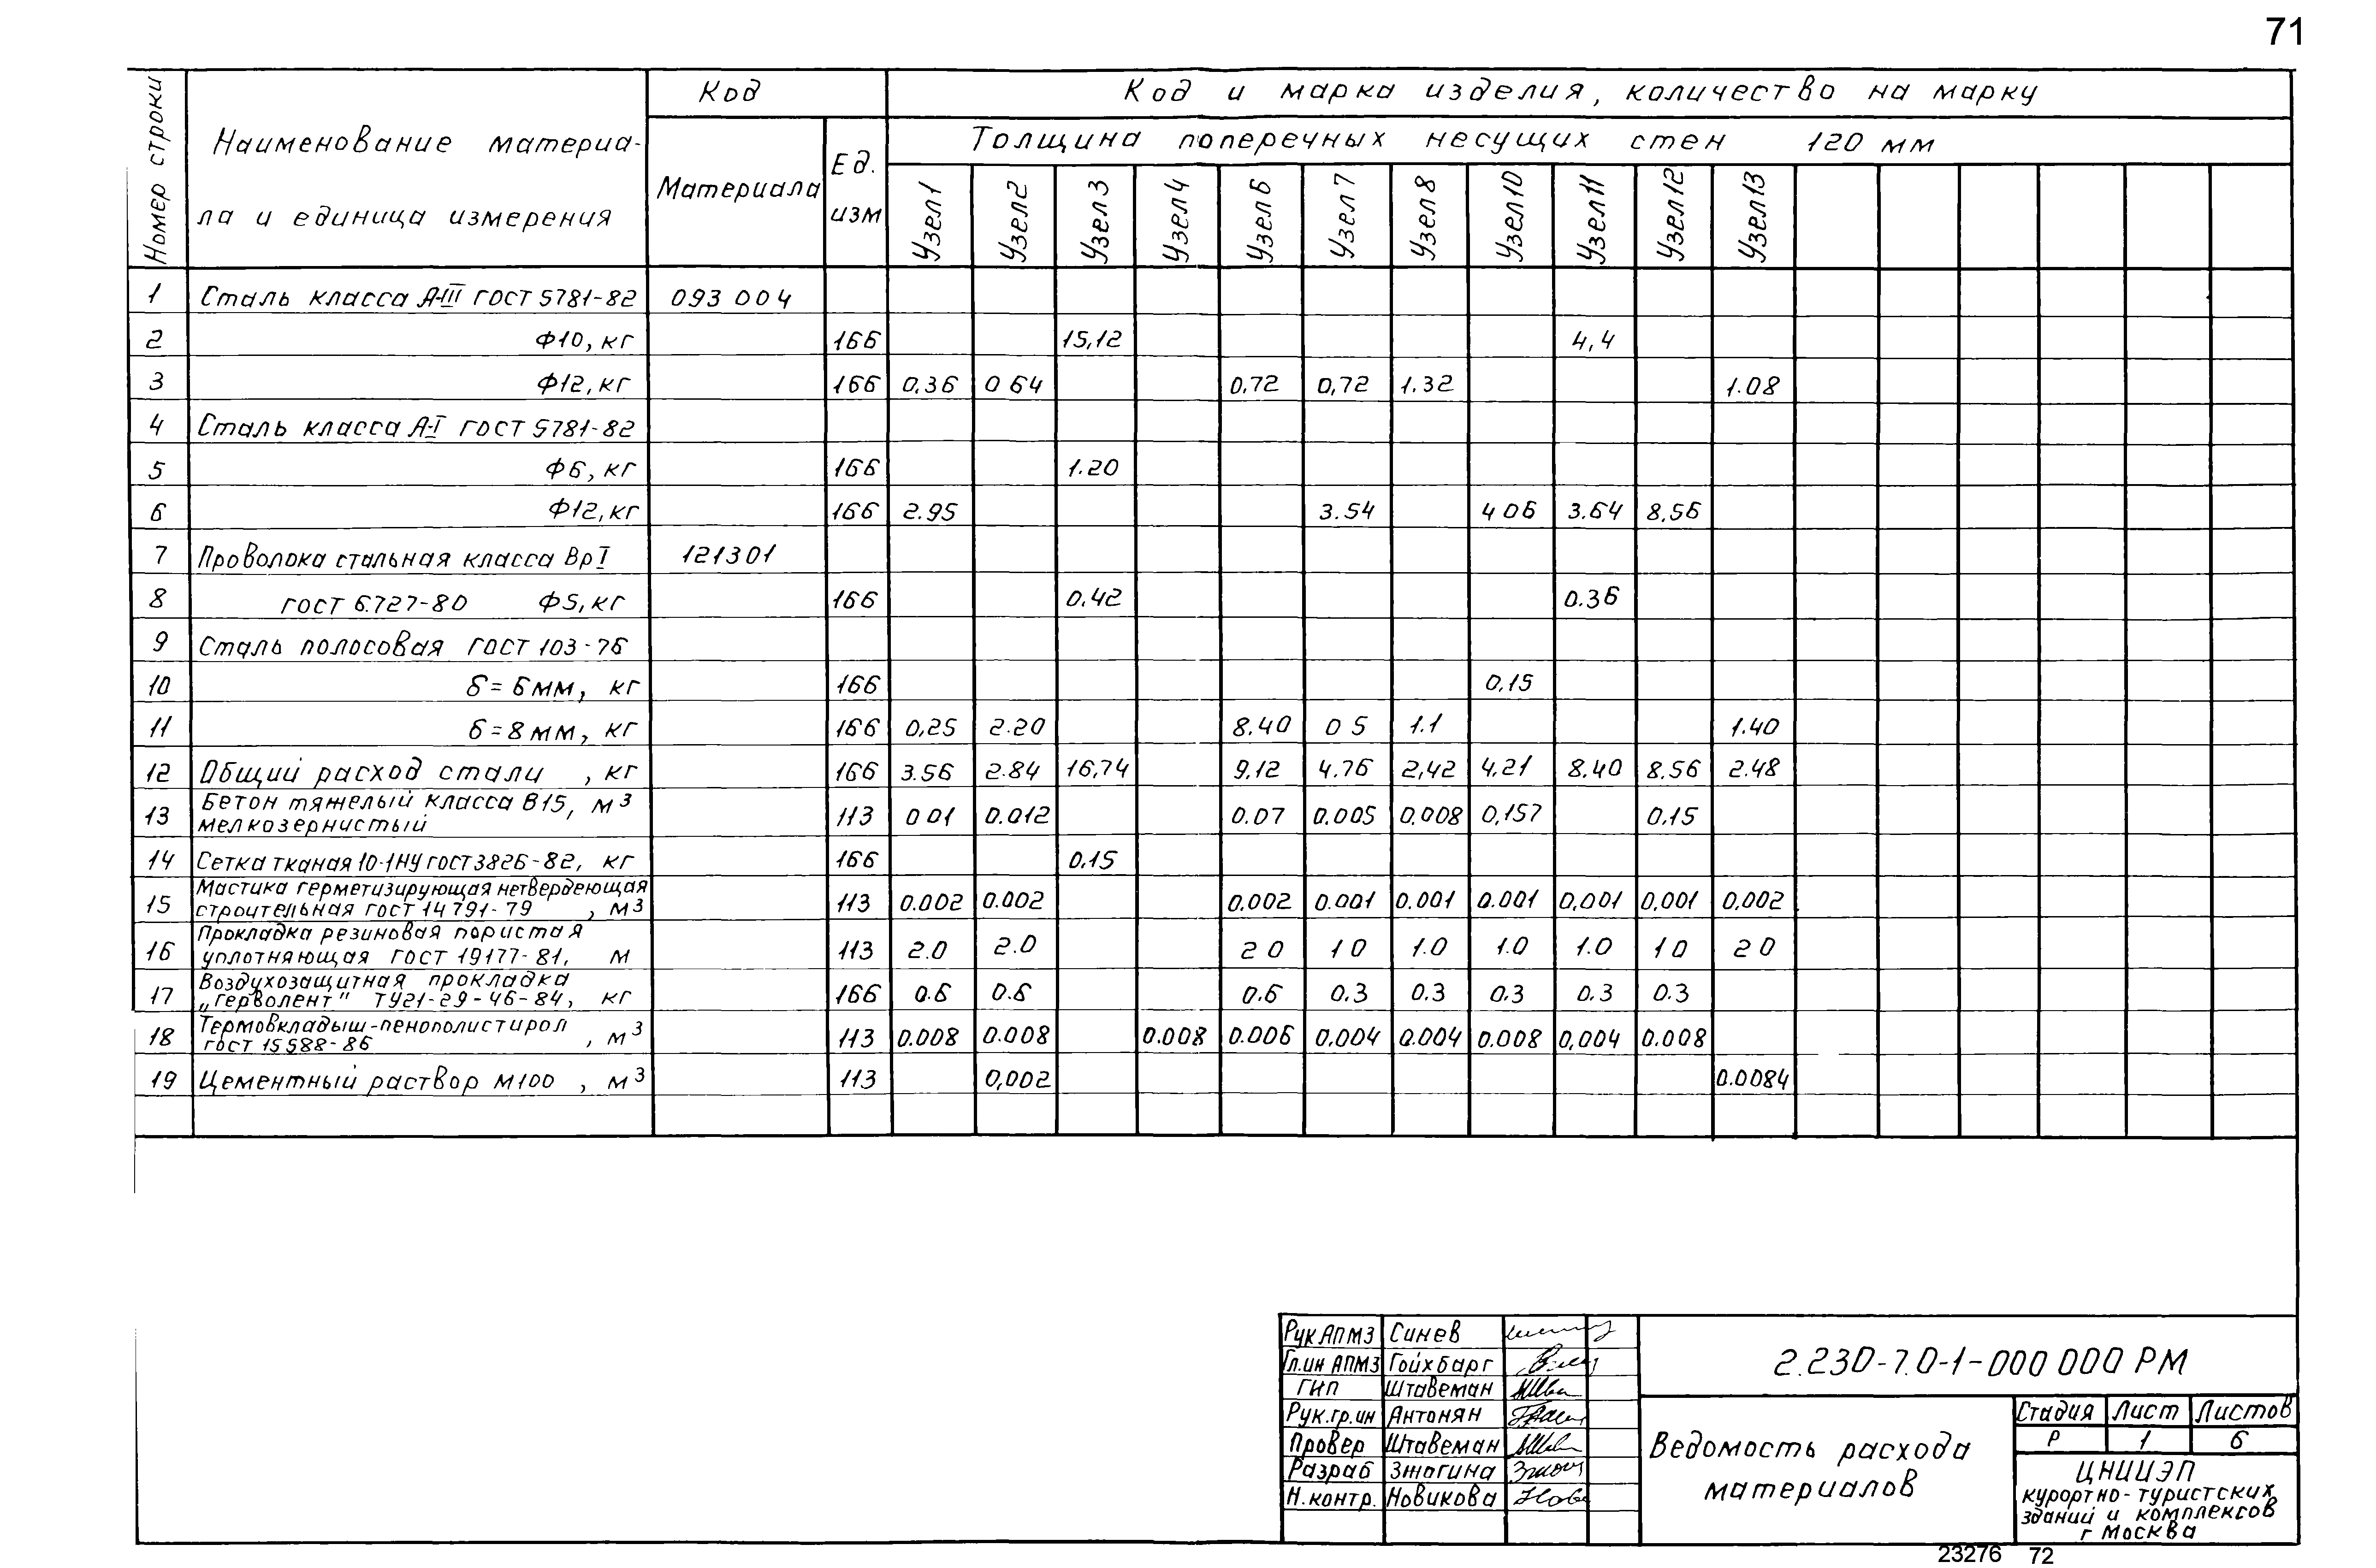 71
Номер строки
Наименование материа-
ла и единица измерения
Код
Материала
Ед.
изм
Код и марка изделия, количество на марку
Толщина поперечных несущих стен 120 мм
Узел 1 Узел 2 Узел 3 Узел 4 Узел 6 Узел 7 Узел 8 Узел 10 Узел 11 Узел 12 Узел 13
1 Сталь класса А-III ГОСТ 5781-82 093 004
2 Ф10, кг 166 15,12 4,4
3 Ф12, кг 166 0,36 0 64 0,72 0,72 1.32 1.08
4 Сталь класса А-I ГОСТ 5781-82
5 Ф6, кг 166 1.20
6 Ф12, кг 166 2.95 3.54 4 06 3.64 8,56
7 Проволока стальная класса Вр I 121301
8 ГОСТ 6727-80 Ф5, кг 166 0.42 0.36
9 Сталь полосовая ГОСТ 103-76
10 δ=6мм, кг 166 0,15
11 δ=8мм, кг 166 0,25 2.20 8.40 0 5 1.1 1.40
12 Общий расход стали , кг 166 3.56 2.84 16,74 9,12 4.76 2,42 4,21 8.40 8,56 2.48
13 Бетон тяжелый класса В15, м³
мелкозернистый 113 0 01 0.012 0.07 0.005 0,008 0,157 0.15
14 Сетка тканая 10-1НУ ГОСТ 3826-82, кг 166 0.15
15 Мастика герметизирующая нетвердеющая
строительная ГОСТ 14791-79 , м³ 113 0.002 0.002 0.002 0.001 0.001 0.001 0,001 0,001 0,002
16 Прокладка резиновая пористая
уплотняющая ГОСТ 19177-81, м 113 2.0 2.0 2 0 1 0 1.0 1.0 1.0 1 0 2 0
17 Воздухозащитная прокладка
„Герволент" ТУ21-29-46-84, кг 166 0.6 0.6 0.6 0.3 0.3 0.3 0.3 0.3
18 Термовкладыш-пенополистирол
ГОСТ 15588-86 , м³ 113 0.008 0.008 0.008 0.006 0,004 0.004 0.008 0,004 0.008
19 Цементный раствор М100 , м³ 113 0,002 0.0084
Рук АПМ3 Синев
Гл.ин АПМ3 Гойхбарг
ГИП Штавеман
Рук.гр.ин Антонян
Провер Штавеман
Разраб Змогина
Н.контр. Новикова
2.230-7.0-1-000 000 РМ
Ведомость расхода
материалов
Стадия Лист Листов
Р 1 6
ЦНИИЭП
курортно-туристских
зданий и комплексов
г Москва
23276 72